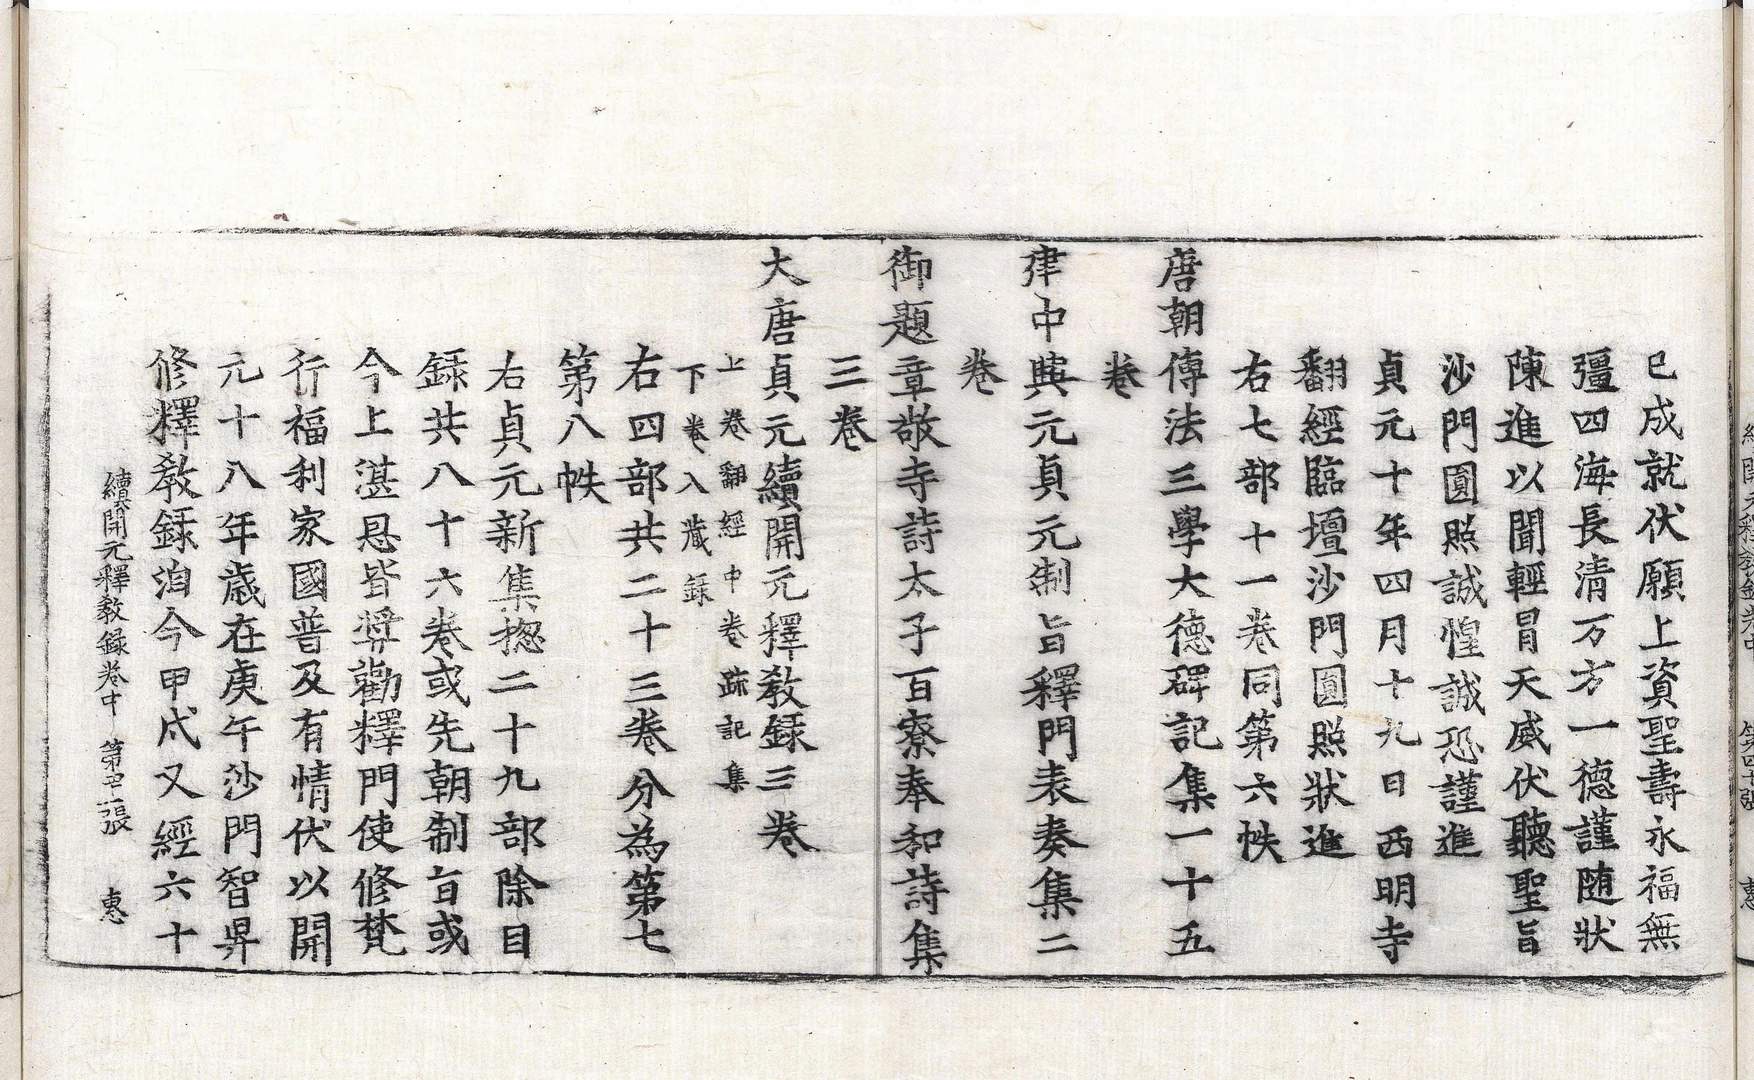 已成就伏願上資聖壽永福無
彊四海長清万方一德謹随狀
陳進以聞輕冒天威伏聽聖旨
沙門圓照誠惶誠恐謹進
貞元十年四月十九日西明寺
翻經臨壇沙門圓照狀進
右七部十一卷同第六帙
唐朝傳法三學大德碑記集一十五
卷
建中興元貞元制旨釋門表奏集二
卷
御題章敬寺詩太子百寮奉和詩集
三卷
大唐貞元續開元釋教録三卷
上卷翻經中卷疏記集
下卷入藏録
右四部共二十三卷分為第七
第八帙
右貞元新集揔二十九部除目
録共八十六卷或先朝制旨或
今上湛恩皆奬勸釋門使修梵
行福利家國普及有情伏以開
元十八年歲在庚午沙門智昇
修釋教録洎今甲戌又經六十
續開元釋教録卷中 第 張 惠